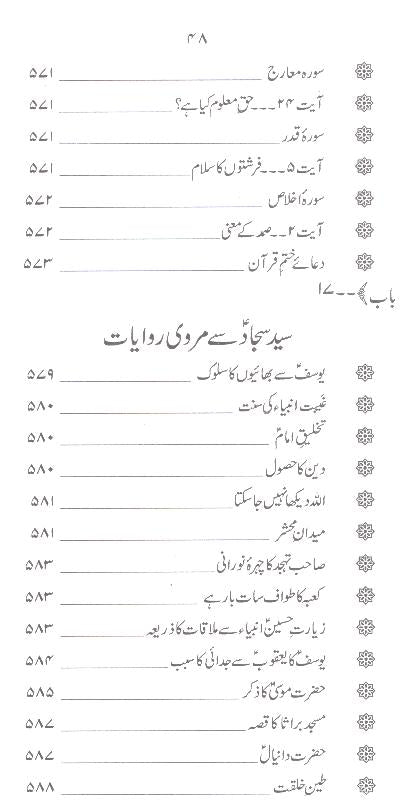 ۴۸
سورہ معارج ۵۷۱
آیت ۲۴ ۔۔۔ حق معلوم کیا ہے؟ ۵۷۱
سورۂ قدر ۵۷۱
آیت ۵ ۔۔۔ فرشتوں کا سلام ۵۷۱
سورۂ اخلاص ۵۷۲
آیت ۲ ۔۔ صمد کے معنی ۵۷۲
دعائے ختم قرآن ۵۷۳
باب ۔۔ ۱۷
سید سجادؑ سے مروی روایات
یوسفؑ سے بھائیوں کا سلوک ۵۷۹
غیبت انبیاء کی سنت ۵۸۰
تخلیقِ امامؑ ۵۸۰
دین کا حصول ۵۸۰
اللہ دیکھا نہیں جا سکتا ۵۸۱
میدانِ محشر ۵۸۱
صاحب تہجد کا چہرۂ نورانی ۵۸۳
کعبہ کا طواف سات بار ہے ۵۸۳
زیارتِ حسینؑ انبیاء سے ملاقات کا ذریعہ ۵۸۳
یوسفؑ کا یعقوبؑ سے جدائی کا سبب ۵۸۴
حضرت موسیٰؑ کا ذکر ۵۸۵
مسجد براثا کا قصہ ۵۸۷
حضرت دانیالؑ ۵۸۷
طینِ خلقت ۵۸۸